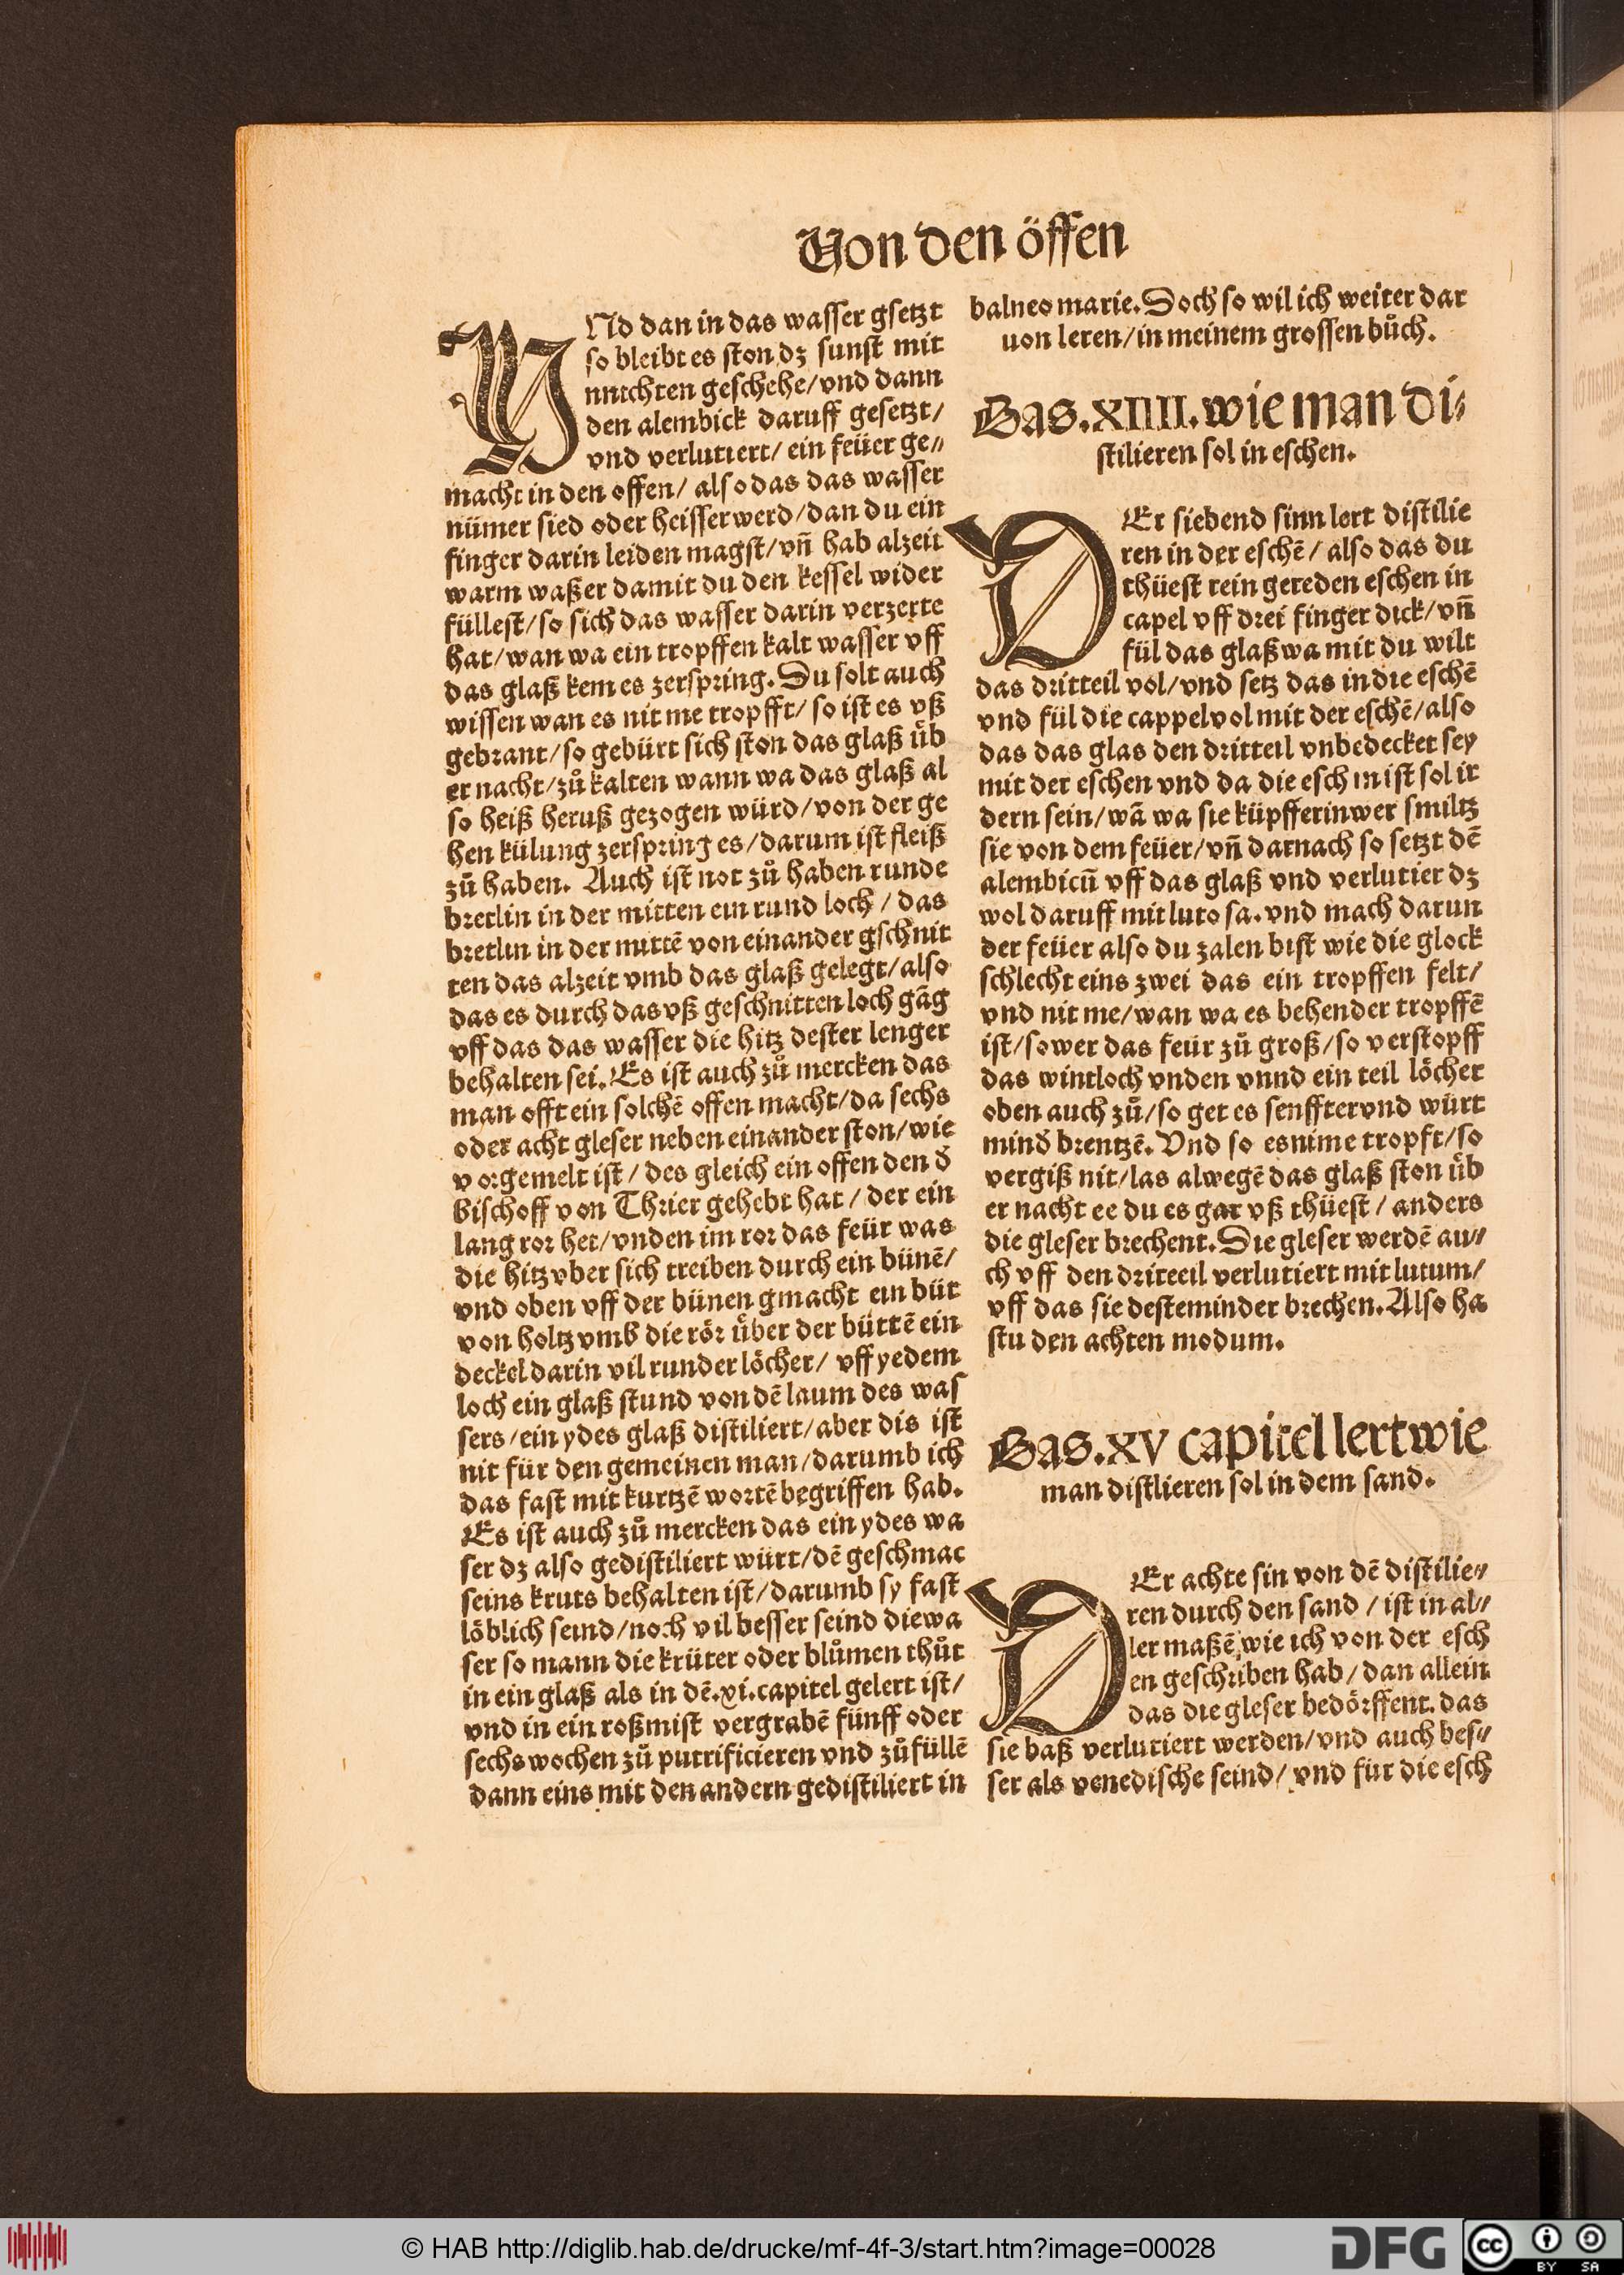 Von den öffen
VNd dan in das wasser gsetzt
so bleibt es ston dz sunst mit
nnichten geschehe/vnd dann
den alembick daruff gesetzt/
vnd verlutiert/ ein feüer ge⸗
macht in den offen/ also das das wasser
nümer sied oder heisser werd/dan du ein
finger darin leiden magst/vn̄ hab alzeit
warm waßer damit du den kessel wider
füllest/so sich das wasser darin verzerte
hat/wan wa ein tropffen kalt wasser vff
das glaß kem es zerspring. Du solt auch
wissen wan es nit me tropfft/ so ist es vß
gebrant/so gebürt sich ston das glaß üb
er nacht/zů kalten wann wa das glaß al
so heiß heruß gezogen würd/von der ge
hen külung zerspring es/darum ist fleiß
zů haben. Auch ist not zů haben runde
bretlin in der mitten ein rund loch / das
bretlin in der mittē von einander gschnit
ten das alzeit vmb das glaß gelegt/also
das es durch das vß geschnitten loch gāg
vff das das wasser die hitz dester lenger
behalten sei. Es ist auch zů mercken das
man offt ein solchē offen macht/da sechs
oder acht gleser neben einander ston/wie
vorgemelt ist / des gleich ein offen den d̄
bischoff von Thrier gehebt hat / der ein
lang ror het/vnden im ror das feür was
die hitz vber sich treiben durch ein bünē/
vnd oben vff der bünen gmacht ein büt
von holtz vmb die rör über der büttē ein
deckel darin vil runder löcher/ vff yedem
loch ein glaß stund von dē laum des was
sers/ein ydes glaß distiliert/aber dis ist
nit für den gemeinen man/darumb ich
das fast mit kurtzē wortē begriffen hab.
Es ist auch zů mercken das ein ydes wa
ser dz also gedistiliert würt/dē geschmac
seins kruts behalten ist/darumb sy fast
löblich seind/noch vil besser seind die wa
ser so mann die krüter oder blůmen thůt
in ein glaß als in dē.xi.capitel gelert ist/
vnd in ein roßmist vergrabē fünff oder
sechs wochen zů putrificieren vnd zů füllē
dann eins mit den andern gedistiliert in
balneo marie. Doch so wil ich weiter dar
uon leren/in meinem grossen bůch.
Das.XIIII.wie man di⸗
stilieren sol in eschen.
DEr siebend sinn lert distilie
ren in der eschē / also das du
thüest rein gereden eschen in
capel vff drei finger dick/vn̄
fül das glaß wa mit du wilt
das dritteil vol/vnd setz das in die eschē
vnd fül die cappel vol mit der eschē/also
das das glas den dritteil vnbedecket sey
mit der eschen vnd da die esch in ist sol ir
dern sein/wā wa sie küpfferin wer smiltz
sie von dem feüer/vn̄ darnach so setzt dē
alembicū vff das glaß vnd verlutier dz
wol daruff mit luto sa. vnd mach darun
der feüer also du zalen bist wie die glock
schlecht eins zwei das ein tropffen felt/
vnd nit me/wan wa es behender tropffē
ist/so wer das feür zů groß/so verstopff
das wintloch vnden vnnd ein teil löcher
oben auch zů/so get es senffter vnd würt
mind̄ brentzē. Vnd so es nime tropft/so
vergiß nit/las alwegē das glaß ston üb
er nacht ee du es gar vß thüest / anders
die gleser brechent. Die gleser werdē au⸗
ch vff den driteeil verlutiert mit lutum/
vff das sie desteminder brechen. Also ha
stu den achten modum.
Das.XV capitel lert wie
man distlieren sol in dem sand.
DEr achte sin von dē distilie⸗
ren durch den sand / ist in al⸗
ler maßē wie ich von der esch
en geschriben hab/ dan allein
das die gleser bedörffent. das
sie baß verlutiert werden/vnd auch bes⸗
ser als venedische seind/ vnd für die esch
© HAB http://diglib.hab.de/drucke/mf-4f-3/start.htm?image=00028
DFG
cc
BY SA